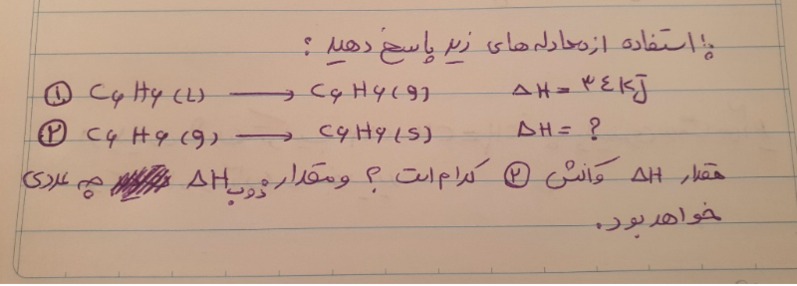 با استفاده از معادله های زیر پاسخ دهید :
① C۶H۶(L) → C۶H۶(g) ΔH = ۳٤ kJ
② C۶H۶(g) → C۶H۶(s) ΔH = ?
مقدار ΔH واکنش ② کدام است ؟ و مقدار ΔH ذوب چه عددی
خواهد بود.